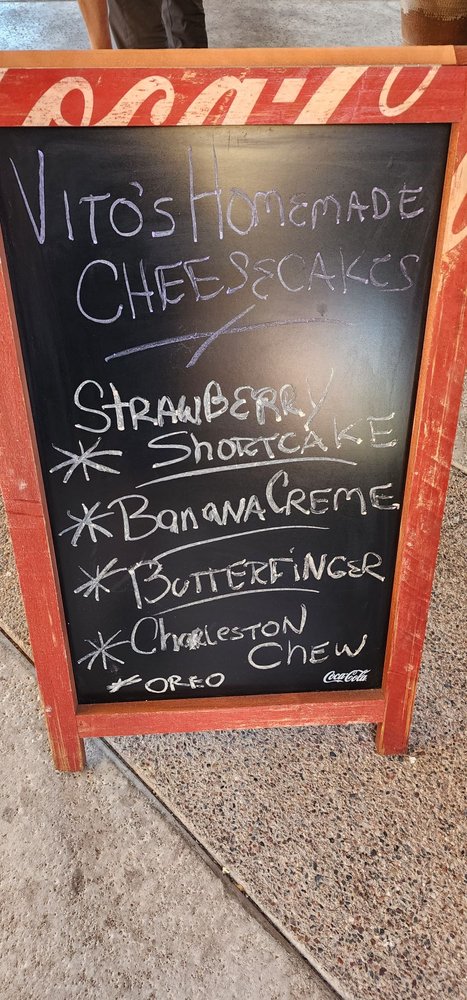 Coca-Co
VITO'S HOMEMADE
CHEESECAKES
STRAWBERRY
* SHORTCAKE
* BANANA CREME
* BUTTERFINGER
* CHARLESTON
CHEW
* OREO
Coca-Cola